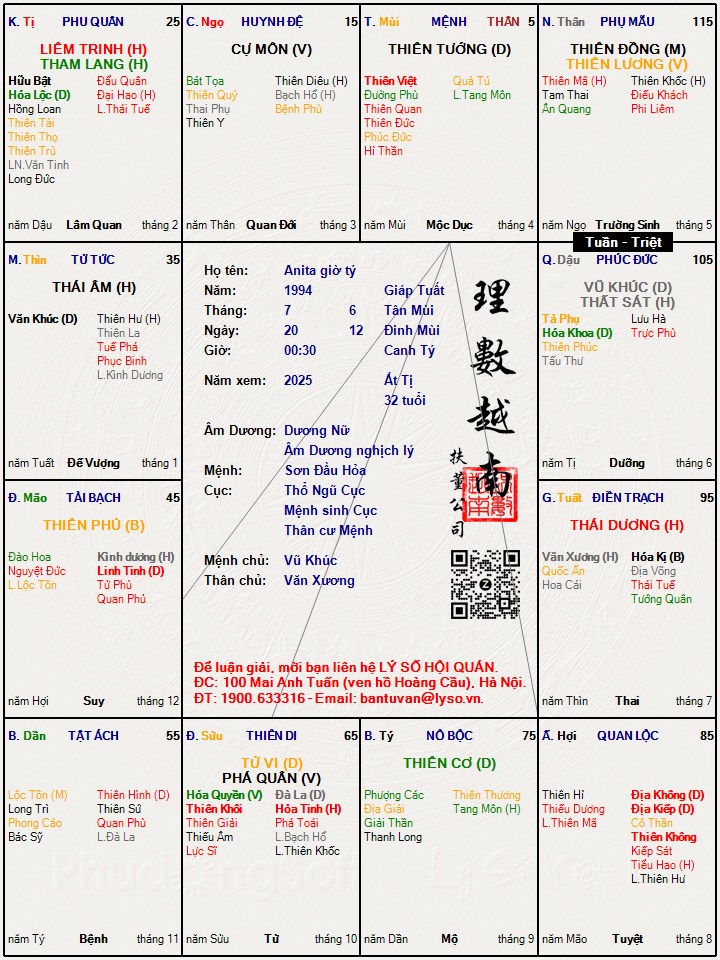 K. Tị PHU QUÂN 25
LIÊM TRINH (H)
THAM LANG (H)
Hữu Bật Đẩu Quân
Hóa Lộc (D) Đại Hao (H)
Hồng Loan L.Thái Tuế
Thiên Tài
Thiên Thọ
Thiên Trù
LN.Văn Tinh
Long Đức
năm Dậu Lâm Quan tháng 2
C. Ngọ HUYNH ĐỆ 15
CỰ MÔN (V)
Bát Tọa Thiên Diêu (H)
Thiên Quý Bạch Hổ (H)
Thai Phụ Bệnh Phù
Thiên Y
năm Thân Quan Đới tháng 3
T. Mùi MỆNH THÂN 5
THIÊN TƯỚNG (D)
Thiên Việt Quả Tú
Đường Phù L.Tang Môn
Thiên Quan
Thiên Đức
Phúc Đức
Hỉ Thần
năm Mùi Mộc Dục tháng 4
N. Thân PHỤ MẪU 115
THIÊN ĐỒNG (M)
THIÊN LƯƠNG (V)
Thiên Mã (H) Thiên Khốc (H)
Tam Thai Điếu Khách
Ân Quang Phi Liêm
năm Ngọ Trường Sinh tháng 5
Tuần - Triệt
M. Thìn TỬ TỨC 35
THÁI ÂM (H)
Văn Khúc (D) Thiên Hư (H)
Thiên La
Tuế Phá
Phục Binh
L.Kình Dương
năm Tuất Đế Vượng tháng 1
Họ tên: Anita giờ tý
Năm: 1994 Giáp Tuất
Tháng: 7 6 Tân Mùi
Ngày: 20 12 Đinh Mùi
Giờ: 00:30 Canh Tý
Năm xem: 2025 Ất Tị
32 tuổi
Âm Dương: Dương Nữ
Âm Dương nghịch lý
Mệnh: Sơn Đầu Hỏa
Cục: Thổ Ngũ Cục
Mệnh sinh Cục
Thân cư Mệnh
Mệnh chủ: Vũ Khúc
Thân chủ: Văn Xương
理數越南
扶董公司
Để luận giải, mời bạn liên hệ LÝ SỐ HỘI QUÁN.
ĐC: 100 Mai Anh Tuấn (ven hồ Hoàng Cầu), Hà Nội.
ĐT: 1900.633316 - Email: bantuvan@lyso.vn.
Q. Dậu PHÚC ĐỨC 105
VŨ KHÚC (D)
THẤT SÁT (H)
Tả Phụ Lưu Hà
Hóa Khoa (D) Trực Phù
Thiên Phúc
Tấu Thư
năm Tị Dưỡng tháng 6
Đ. Mão TÀI BẠCH 45
THIÊN PHỦ (B)
Đào Hoa Kình dương (H)
Nguyệt Đức Linh Tinh (D)
L.Lộc Tồn Tử Phù
Quan Phủ
năm Hợi Suy tháng 12
G. Tuất ĐIỀN TRẠCH 95
THÁI DƯƠNG (H)
Văn Xương (H) Hóa Kị (B)
Quốc Ấn Địa Võng
Hoa Cái Thái Tuế
Tướng Quân
năm Thìn Thai tháng 7
B. Dần TẬT ÁCH 55
Lộc Tồn (M) Thiên Hình (D)
Long Trì Thiên Sứ
Phong Cáo Quan Phù
Bác Sỹ L.Đà La
năm Tý Bệnh tháng 11
Đ. Sửu THIÊN DI 65
TỬ VI (D)
PHÁ QUÂN (V)
Hóa Quyền (V) Đà La (D)
Thiên Khôi Hỏa Tinh (H)
Thiên Giải Phá Toái
Thiếu Âm L.Bạch Hổ
Lực Sĩ L.Thiên Khốc
năm Sửu Tử tháng 10
B. Tý NÔ BỘC 75
THIÊN CƠ (D)
Phượng Các Thiên Thương
Địa Giải Tang Môn (H)
Giải Thần
Thanh Long
năm Dần Mộ tháng 9
Ấ. Hợi QUAN LỘC 85
Thiên Hỉ Địa Không (D)
Thiếu Dương Địa Kiếp (D)
L.Thiên Mã Cô Thần
Thiên Không
Kiếp Sát
Tiểu Hao (H)
L.Thiên Hư
năm Mão Tuyệt tháng 8